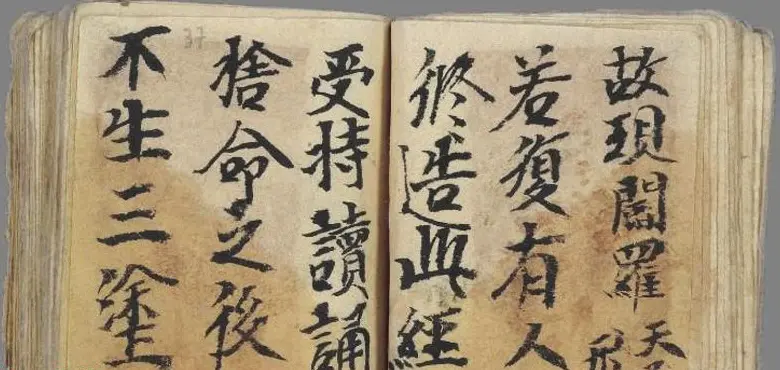 故現閻羅天
若復有人
修造此經
受持讀誦
捨命之後
不生三塗
37